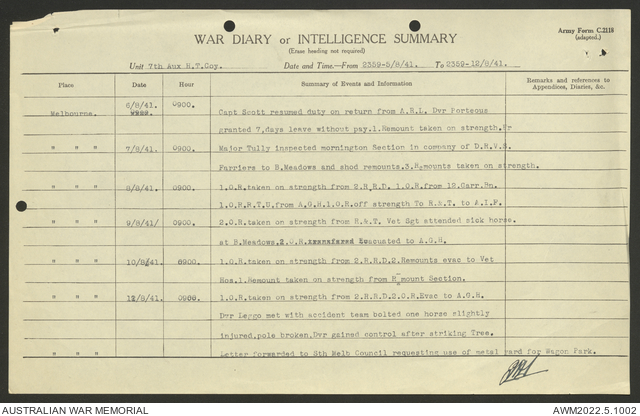 WAR DIARY or INTELLIGENCE SUMMARY
Army Form C.2118
(adapted.)
(Erase heading not required)
Unit 7th Aux H.T.Coy. Date and Time.—From 2359-5/8/41. To 2359-12/8/41.
Place Date Hour Summary of Events and Information Remarks and references to Appendices, Diaries, &c.
Melbourne. 6/8/41. 0900. Capt Scott resumed duty on return from A.R.L. Dvr Porteous
granted 7,days leave without pay.1.Remount taken on strength.
" " " 7/8/41. 0900. Major Tully inspected mornington Section in company of D.R.V.S.
Farriers to B.Meadows and shod remounts.3.Remounts taken on strength.
" " " 8/8/41. 0900. 1.O.R.taken on strength from 2.R.R.D. 1.O.R.from 12.Garr.Bn.
1.O.R.R.T.U.from A.G.H.1.O.R.off strength To R.&.T. to A.I.F.
" " " 9/8/41/ 0900. 2.O.R.taken on strength from R.&.T. Vet Sgt attended sick horse.
at B.Meadows.2.O.R. Evacuated to A.G.H.
" " " 10/8/41. 0900. 1.O.R.taken on strength from 2.R.R.D.2.Remounts evac to Vet
Hos.1.Remount taken on strength from Remount Section.
" " " 12/8/41. 0900. 1.O.R.taken on strength from 2.R.R.D.2.O.R.Evac to A.G.H.
Dvr Leggo met with accident team bolted one horse slightly
injured,pole broken,Dvr gained control after striking Tree.
" " " Letter forwarded to Sth Melb Council requesting use of metal yard for Wagon Park.
AUSTRALIAN WAR MEMORIAL AWM2022.5.1002